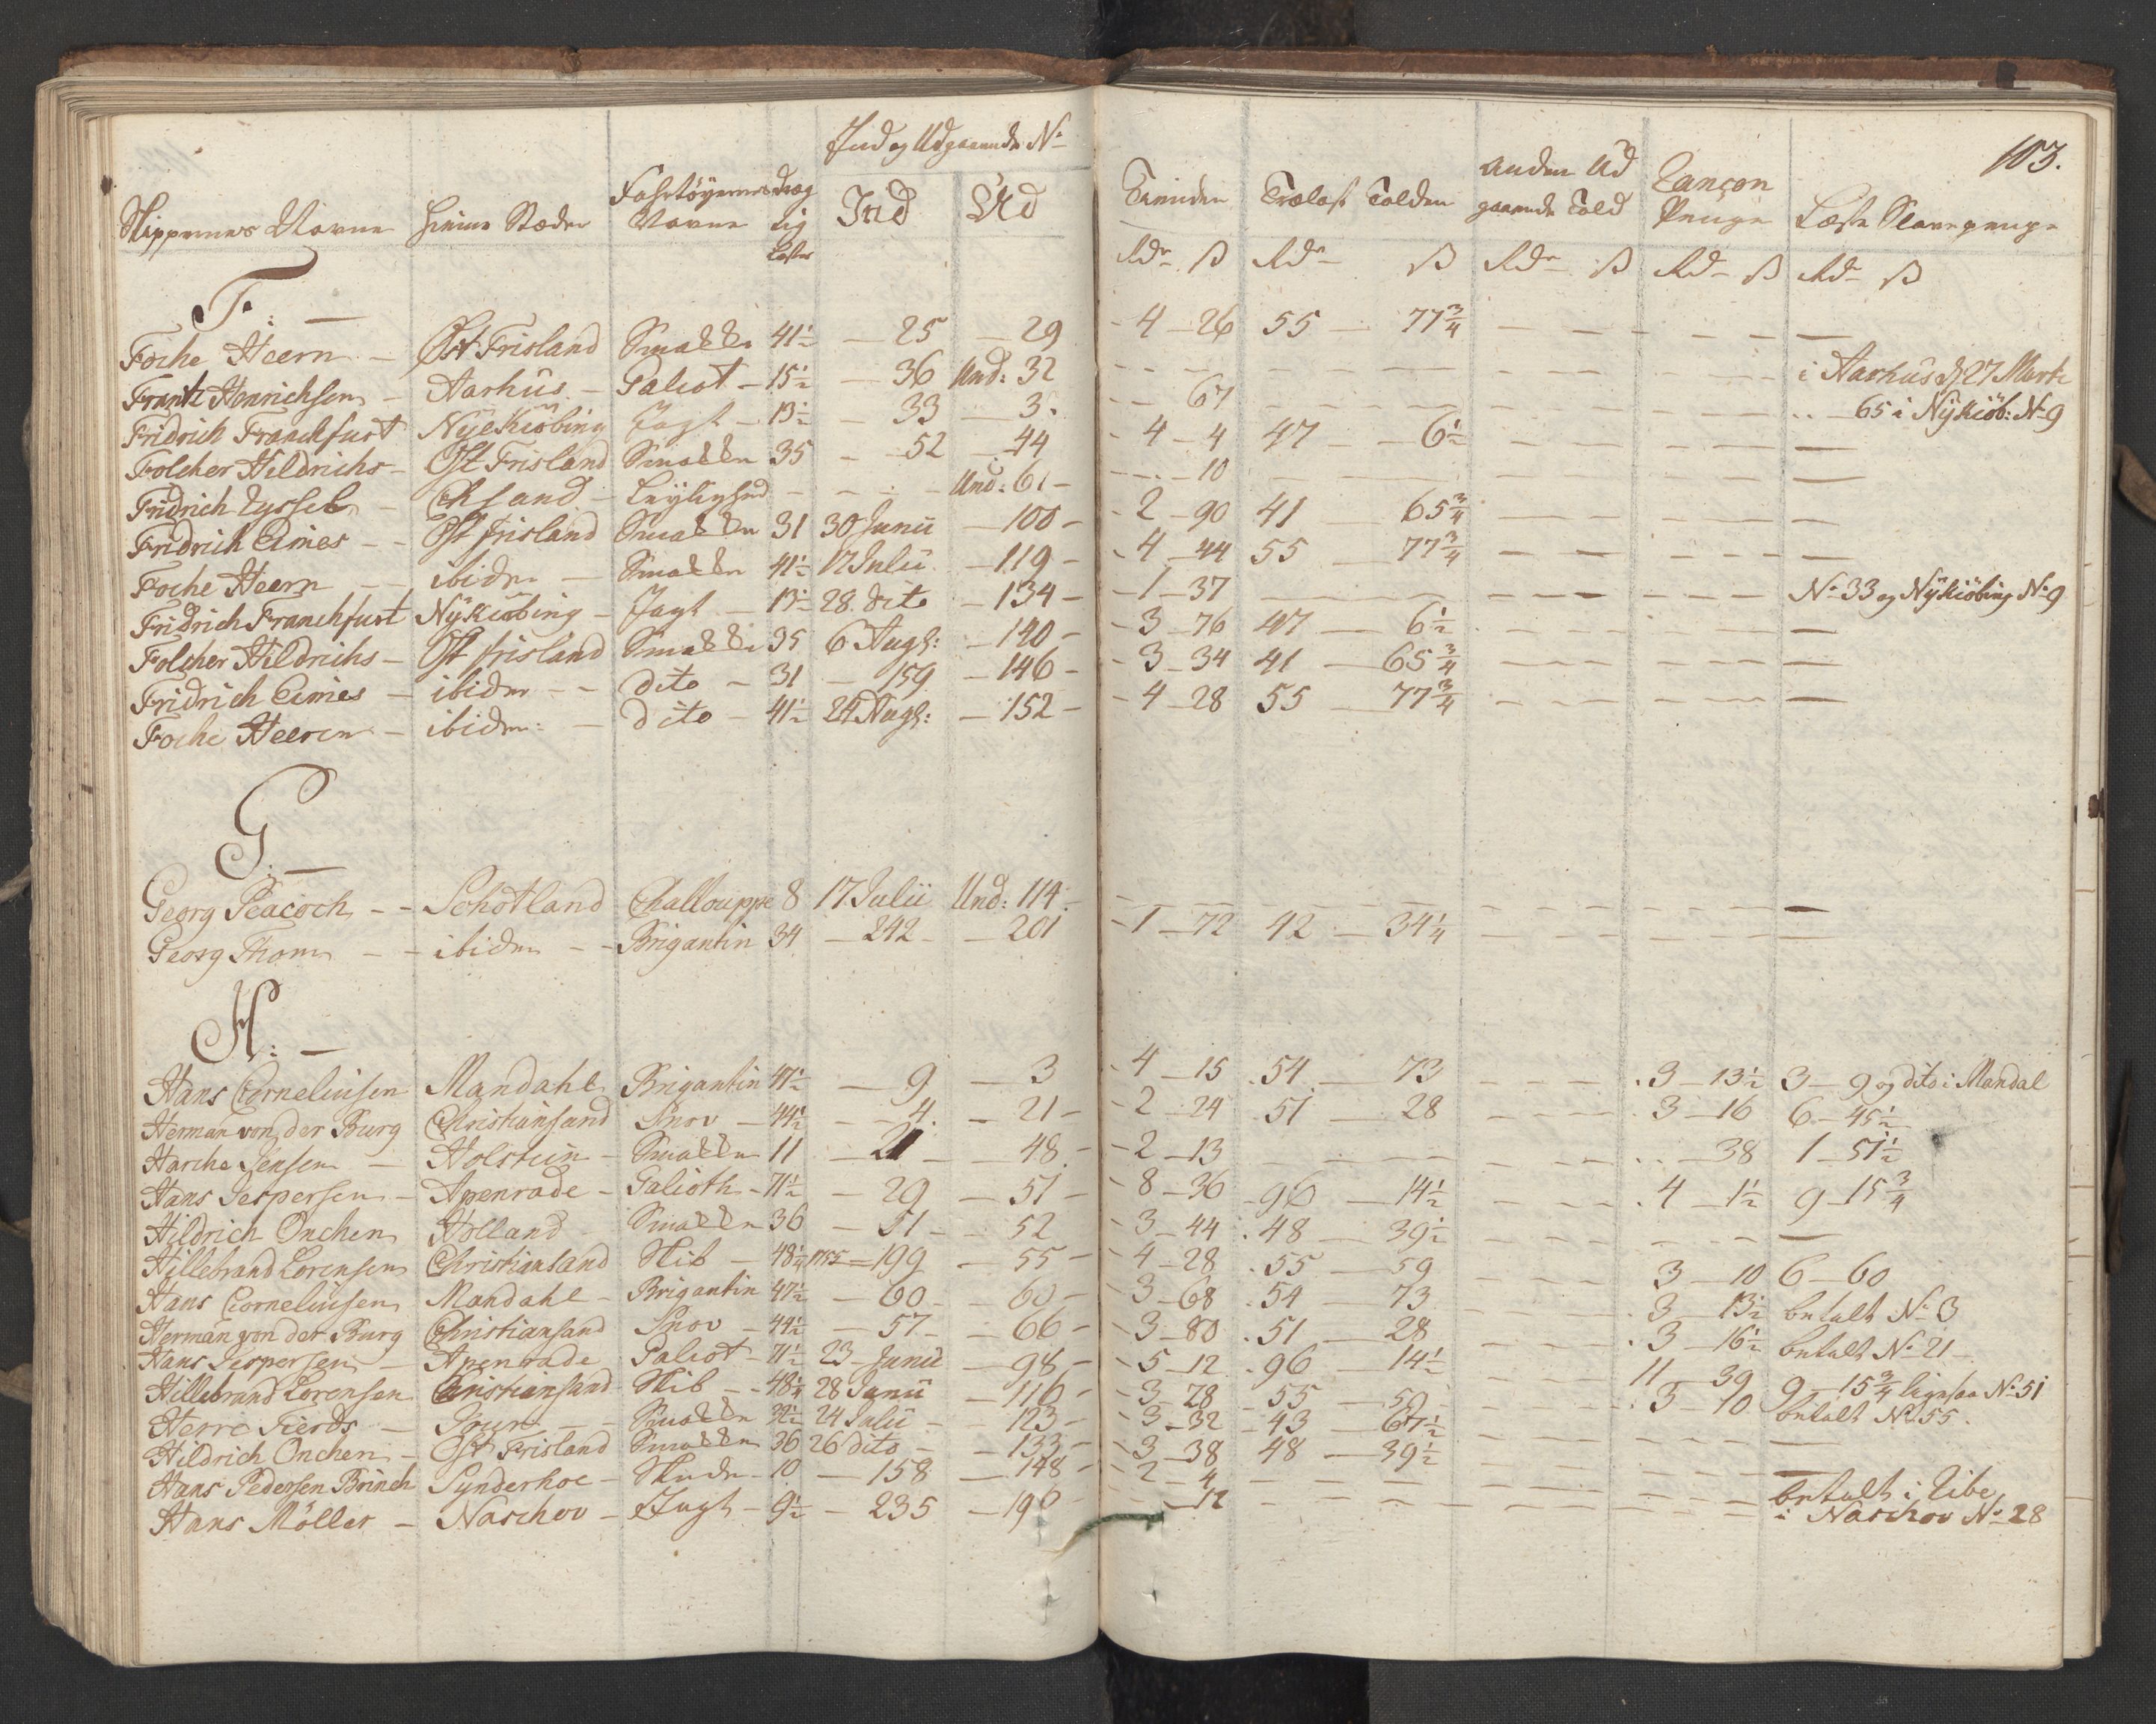 103.
Ind og Udgaaende No
Skippernes Navne Hiems Stæder Fahrtøyernes Navne Dræg tig Læster Ind Ud Tienden Trælast Tolden anden Ud gaaende Told Rançon Penge Læste Slavepenge
Rdr ß Rdr ß Rdr ß Rdr ß Rdr ß
F. —
Foche Heern — Øst Frisland Smakke 41½ — 25 — 29 — 4 — 26 55 — 77¾ — — — —
Frantz Henrichsen — Aarhus — Galiot — 15½ — 36 Und: 32 — — — — i Aarhus d 27 Marti
Fridrich Franckfurt Nÿekiöbing Jagt — 13½ — 33 — 3. — — 67 — — — 65 i Nÿkiöb: No 9
Folcher Hildrichs — Ost Frisland Smakke 35 — 52 — 44 — 4 — 4 47 — 6½ — — — —
Fridrich — Leylighed — — — Und: 61 — — 10 — — — —
Fridrich Eimes — Ost frisland Smakke 31 30 Junii — 100 — 2 — 90 41 65¾ — — — —
Foche Heern — ibidem — Smakke 41½ 17 Julii — 119 — 4 — 44 55 — 77¾ — — — —
Fridrich Franckfurt Nÿkiöbing — Jagt — 13½ 28 dito — 134 — 1 — 37 — — — No 33 og Nÿkiöbing No 9
Folcher Hildrichs — Ost frisland Smakke 35 6 Augs: — 140 — 3 — 76 47 — 6½ — — — —
Fridrich Eimes — ibidem — dito — 31 — 159 — 146 — 3 — 34 41 — 65¾ — — — —
Foche Heeren — ibidem: — dito — 41½ 24 Augs: — 152 — 4 — 28 55 — 77¾ — — — —
G. —
Georg Peacoch — Schotland Challouppe 8 17 Julii Und: 114 — — — — —
Georg Thom — ibidem — Brigantin 34 — 242 — 201 — 1 — 72 42 — 34¼ — — — —
H: —
Hans Corneliusen Mandahl Brigantin 47½ — 9 — 3 — 4 — 15 54 — 73 — — 3 — 13½ 3 — 9 og dito i Mandal
Herman von der Burg Christiansand Snov — 44½ — 4 — 21 — 2 — 24 51 — 28 — — 3 — 16 6 — 45½
Harche Jensen — Holstein — Smakke 11 — 21 — 48 — 2 — 13 — — — 38 1 — 51½
Hans Jespersen — Apenrade — Galioth — 71½ — 29 — 51 — 8 — 36 96 — 14½ — — 4 — 1½ 9 — 15¾
Hildrich Onchen Holland Smakke 36 — 51 — 52 — 3 — 44 48 — 39½ — — — —
Hillebrand Lorensen Christiansand Skib — 48¼ 1755 = 199 — 55 — 4 — 28 55 — 59 — — 3 — 10 6 — 60
Hans Corneliusen Mandahl — Brigantin 47½ — 60 — 60 — 3 — 68 54 — 73 — — 3 — 13½ betalt No 3
Herman von der Burg Christiansand Snov — 44½ — 57 — 66 — 3 — 80 51 — 28 — — 3 — 16½ betalt No 21
Hans Jespersen — Apenrade Galiot — 71½ 23 Junii — 98 — 5 — 12 96 — 14½ — — 11 — 39 9 — 15¾ ligesaa No 51
Hillebrand Lorensen Christiansand Skib — 48¼ 28 Junii — 116 — 3 — 78 55 — 59 — — 3 — 10 betalt No 55.
Herre — Smakke 32½ 24 Julii — 123 — 3 — 32 43 — 67½ — — — —
Hildrich Onchen — Ost Frisland Smakke 36 26 dito — 133 — 3 — 38 48 — 39½ — — — —
Hans Pedersen Brinch Synderhoe — Skude — 10 — 158 — 148 — 2 — 4 — — — betalt i Ribe
Hans Möller — Naschov — Jagt — 9½ — 235 — 196 — — 12 — — — i Naschov No 28